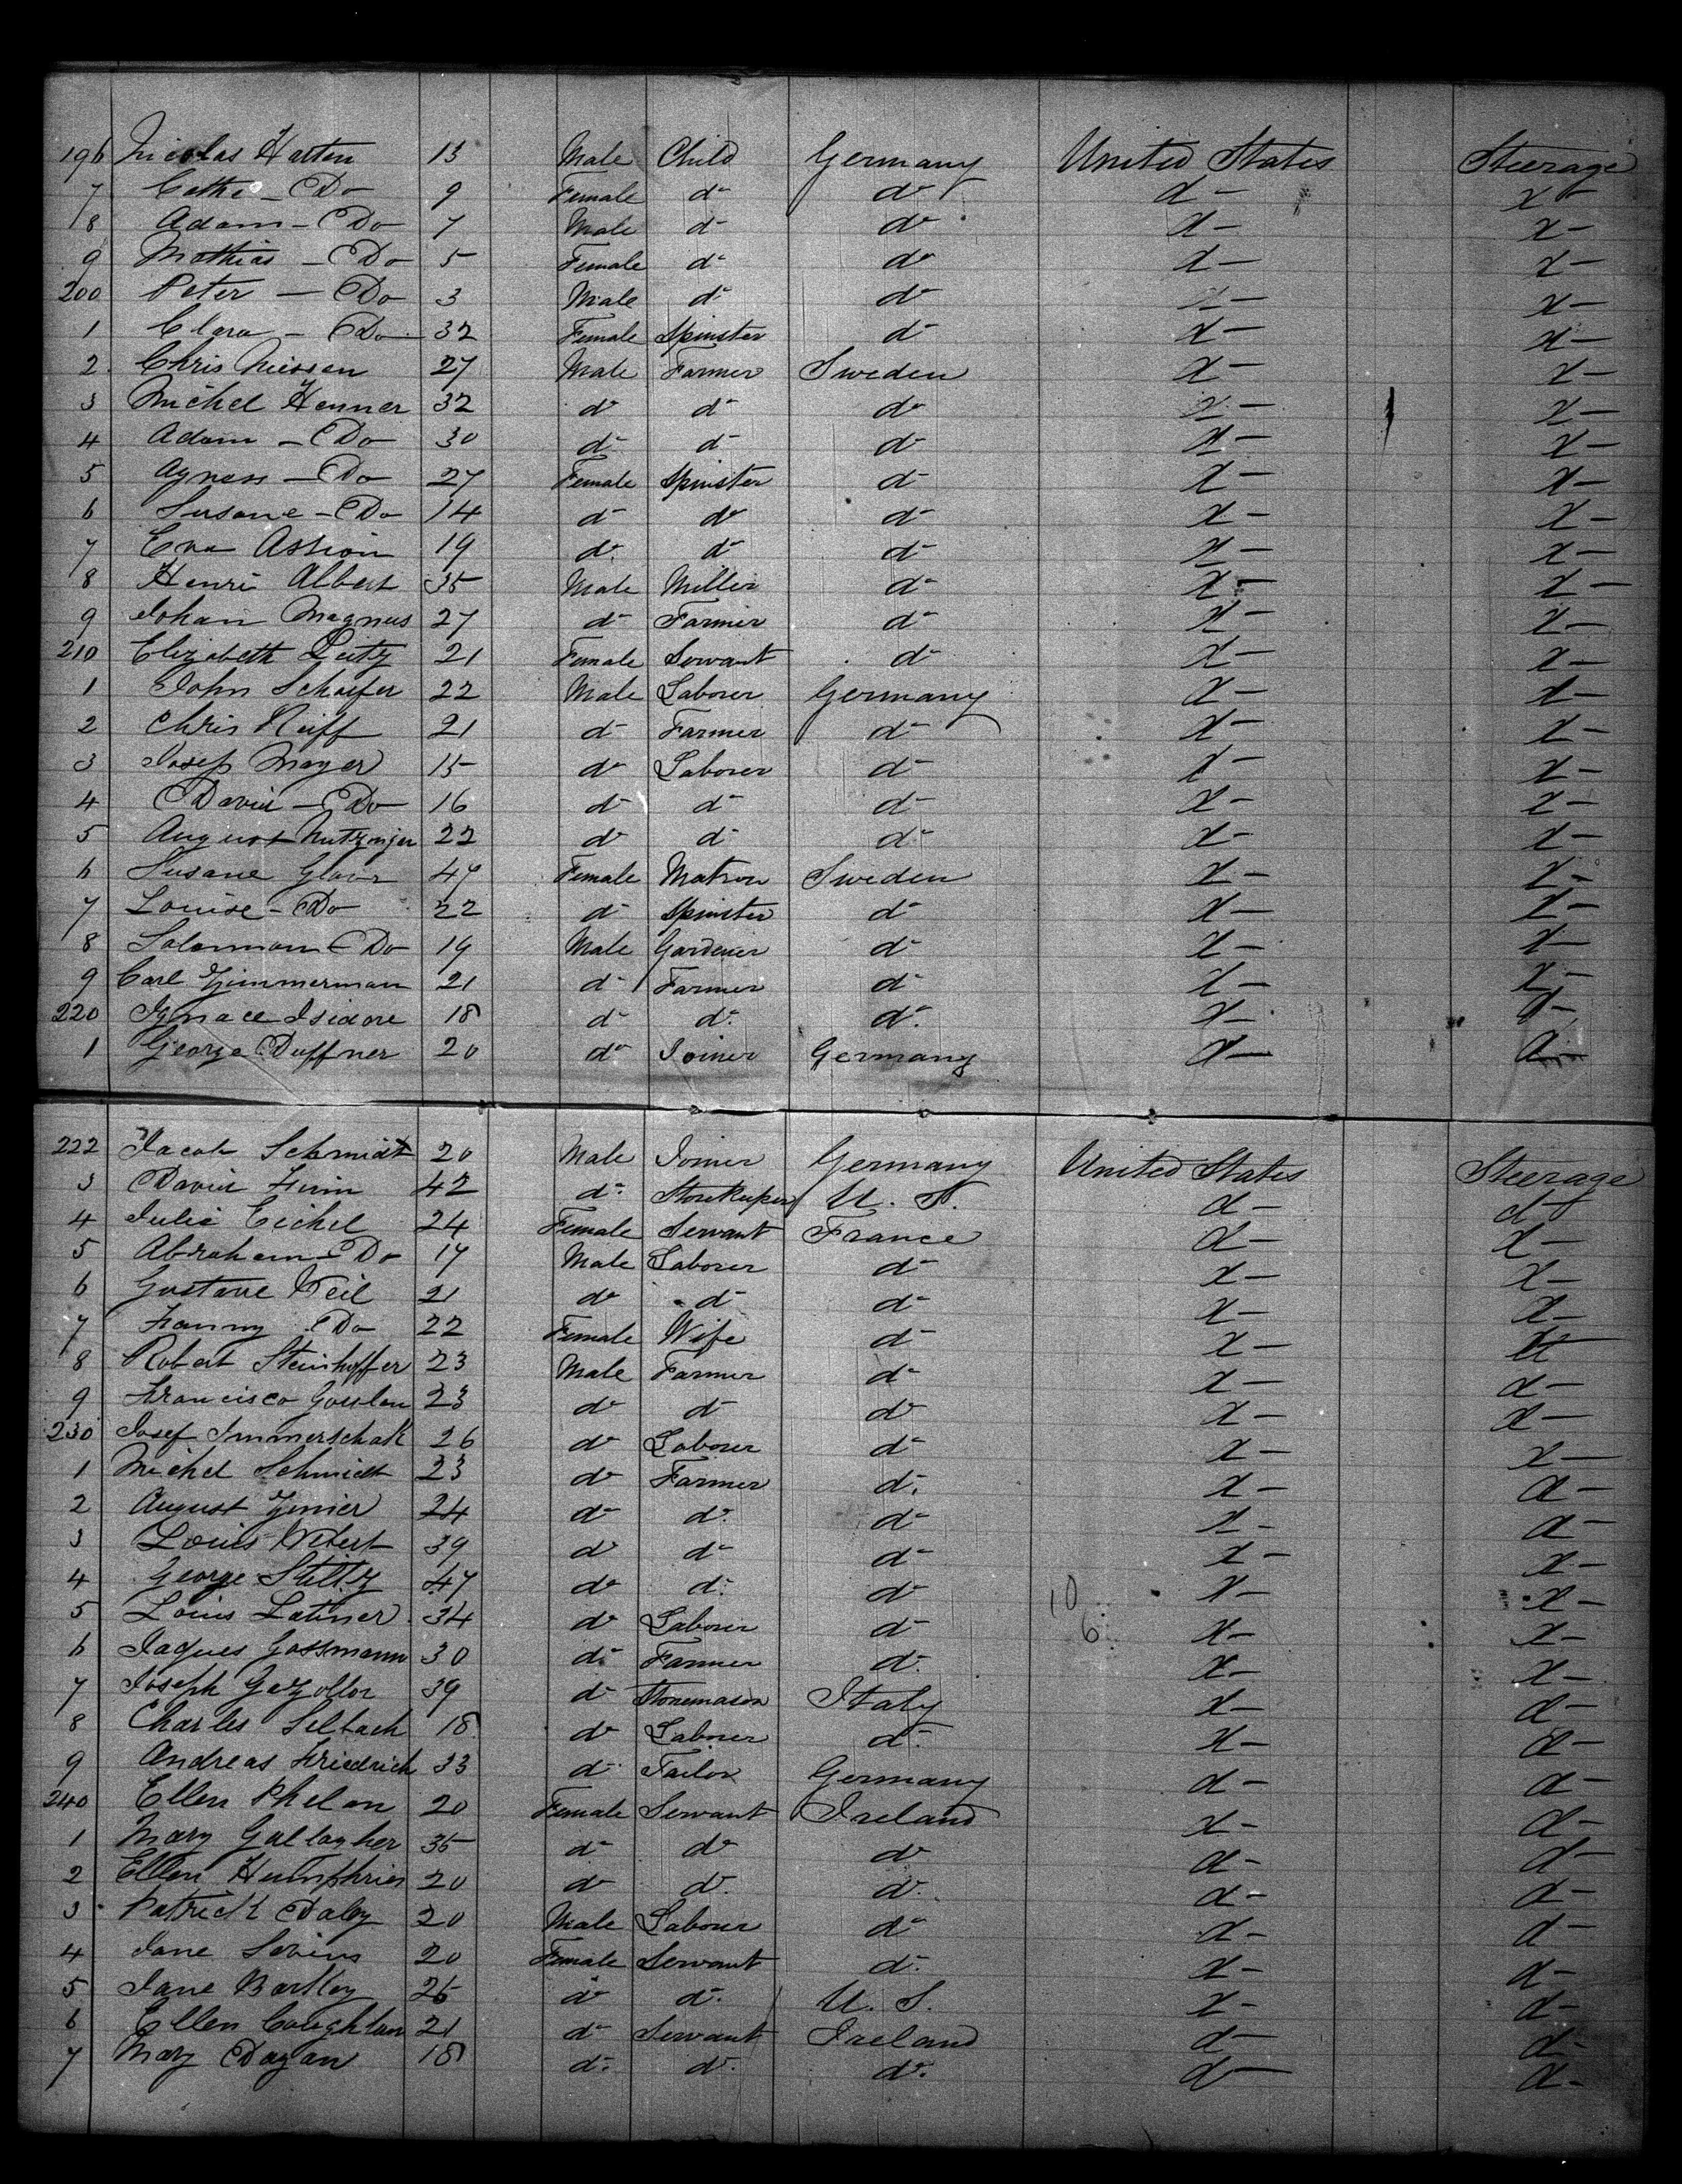 196 Nicolas Harten 13 Male Child Germany United States Steerage
7 Cathe - Do 9 Female d- d- d- x-
8 Adam - Do 7 Male d- d- x- x-
9 Mathias - Do 5 Female d- d- x- x-
200 Peter - Do 3 Male d- d- x- x-
1 Clara - Do 32 Female Spinster d- x- x-
2 Chris Niessen 27 Male Farmer Sweden x- x-
3 Michel Henner 32 d- d- d- x- x-
4 Adam - Do 30 d- d- d- x- x-
5 Agness - Do 27 Female Spinster d- x- x-
6 Susane - Do 14 d- d- d- x- x-
7 Eva Assion 19 d- d- d- x- x-
8 Henri Albert 35 Male Miller d- x- x-
9 Johan Magnus 27 d- Farmer d- x- x-
210 Elizabeth Deitz 21 Female Servant d- x- x-
1 John Schaefer 22 Male Laborer Germany x- x-
2 Chris Reiff 21 d- Farmer d- x- x-
3 Josep Mayer 15 d- Laborer d- x- x-
4 David - Do 16 d- d- d- x- x-
5 August 22 d- d- d- x- x-
6 Susane 47 Female Matron Sweden x- x-
7 Louise - Do 22 d- Spinster d- x- x-
8 Salomman - Do 19 Male Gardener d- x- x-
9 Carl Zimmerman 21 d- Farmer d- x- x-
220 Ignace Isidore 18 d- d- d- x- d-
1 George Duffner 20 d- Joiner Germany d- d-
222 Jacob Schmidt 20 Male Joiner Germany United States Steerage
3 David 42 d- Storekeeper U. S. d- d-
4 Julie Eichel 24 Female Servant France d- x-
5 Abraham - Do 17 Male Laborer d- x- x-
6 Gustave Weil 21 d- d- d- x- x-
7 Fanny Do 22 Female Wife d- x- d-
8 Robert Steinhoffer 23 Male Farmer d- x- d-
9 Francisco 23 d- d- d- x- d-
230 Josef Immerschak 26 d- Laborer d- x- x-
1 Michel Schmidt 23 d- Farmer d- x- d-
2 August Zinier 24 d- d- d- x- d-
3 Louis 39 d- d- d- x- x-
4 George Stiltz 47 d- d- d- 10 x- x-
5 Louis Latiner 34 d- Laborer d- 6 x- x-
6 Jaques Gassmann 30 d- Farmer d- x- x-
7 Joseph Gazollor 39 d- Stonemason Italy x- d-
8 Charles Selbach 18 d- Laborer d- x- d-
9 Andreas Friedrich 33 d- Tailor Germany d- d-
240 Ellen Phelan 20 Female Servant Ireland x- d-
1 Mary Gallagher 35 d- d- d- d- d-
2 Ellen Humphries 20 d- d- d- d- d-
3 Patrick Daley 20 Male Laborer d- d- d-
4 Jane Sevins 20 Female Servant d- x- d-
5 Jane Bartley 25 d- d- U. S. x- d-
6 Ellen Coughlan 21 d- Servant Ireland d- d-
7 Mary Dagan 18 d- d- d- d- d-